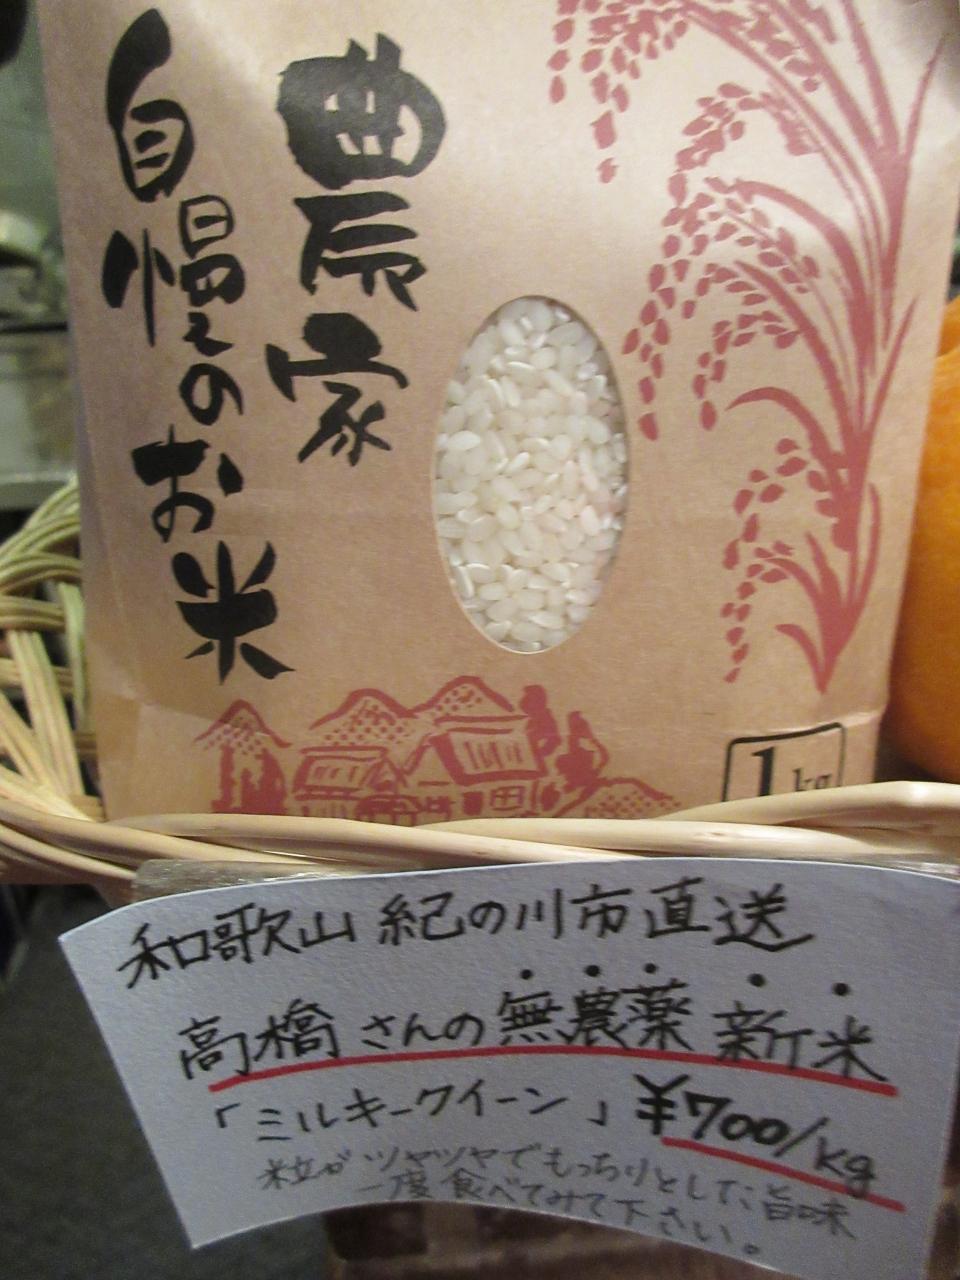 農家
自慢のお米
1kg
和歌山 紀の川市直送
高橋さんの無農薬新米
「ミルキークイーン」¥700/kg
粒がツヤツヤでもっちりとした旨味
一度食べてみて下さい。